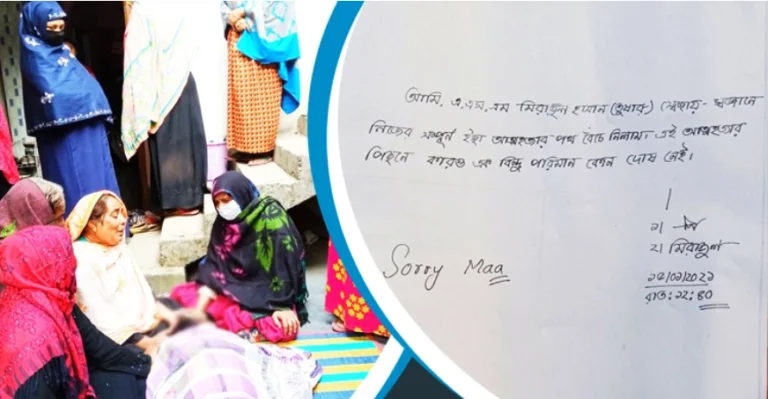 আমি, এ,এস,এম মিরাজুল হাসান (তুষার) স্বেচ্ছায়- স্বজ্ঞানে
নিজের সম্পূর্ন ইচ্ছা আত্মহত্যার পথ বেঁচে নিলাম। এই আত্মহত্যার
পিছনে কারও এক বিন্দু পরিমান কোন দোষ নেই।
১।
২। মিরাজুল
Sorry Maa
রাত: ১২:৪০